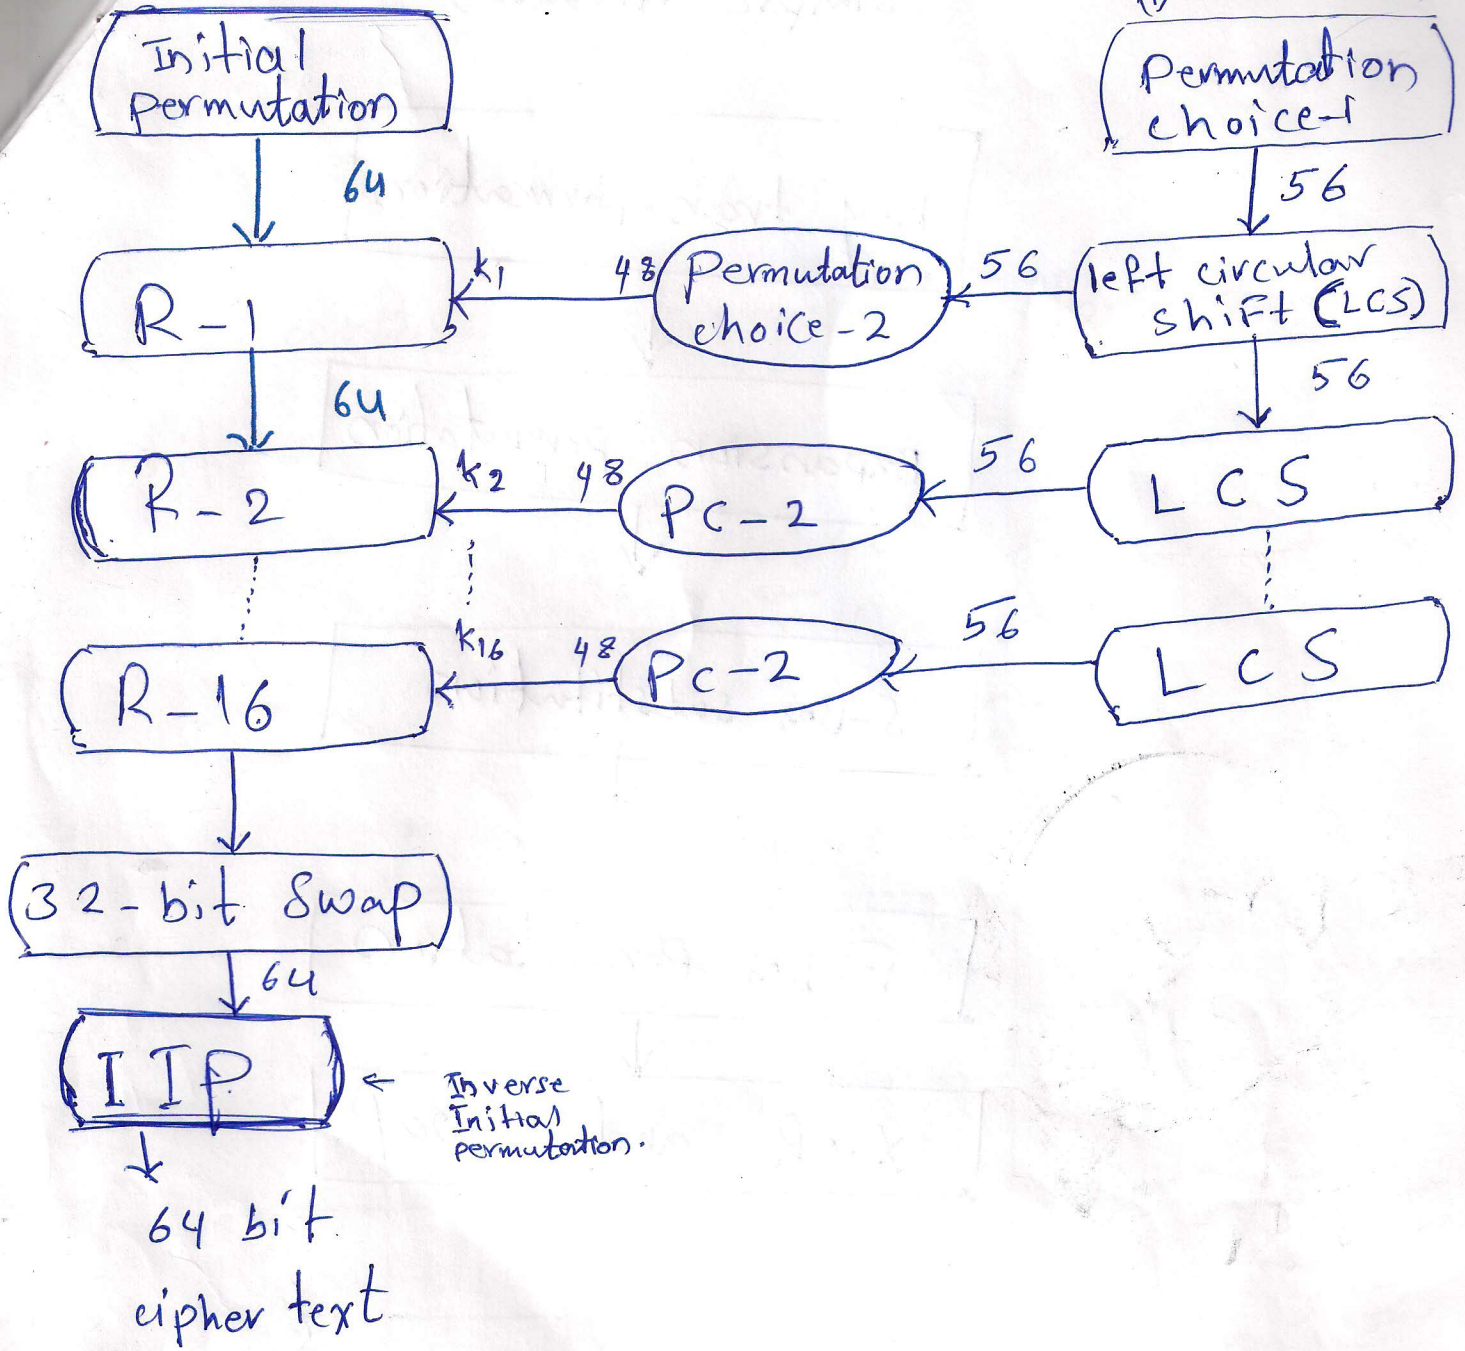 Initial
permutation
permutation
choice-1
64
56
R-1
k1
48
permutation
choice-2
56
left circular
shift (LCS)
64
56
R-2
k2
48
PC-2
56
LCS
R-16
k16
48
PC-2
56
LCS
32-bit Swap
64
IIP
←
Inverse
Initial
permutation.
64 bit
cipher text